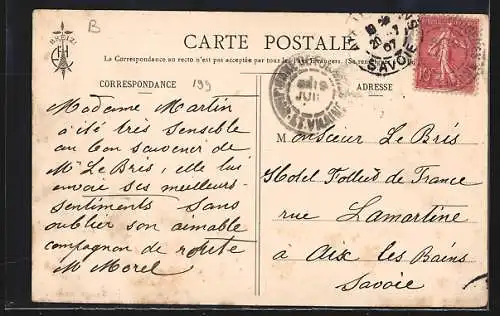 B
BREIZ
CARTE POSTALE
La Correspondance au recto n'est pas acceptée par tous les Pays Étrangers. (Se ren
CORRESPONDANCE
199
ADRESSE
20 -7
07
SAVOIE
10c
JUIL
Madame Martin
a été très sensible
au bon souvenir de
Mr Le Bris, elle lui
envoie ses meilleurs
sentiments sans
oublier son aimable
compagnon de route
M Morel
Monsieur Le Bris
Hotel Follied de France
rue Lamartine
à Aix les Bains
Savoie